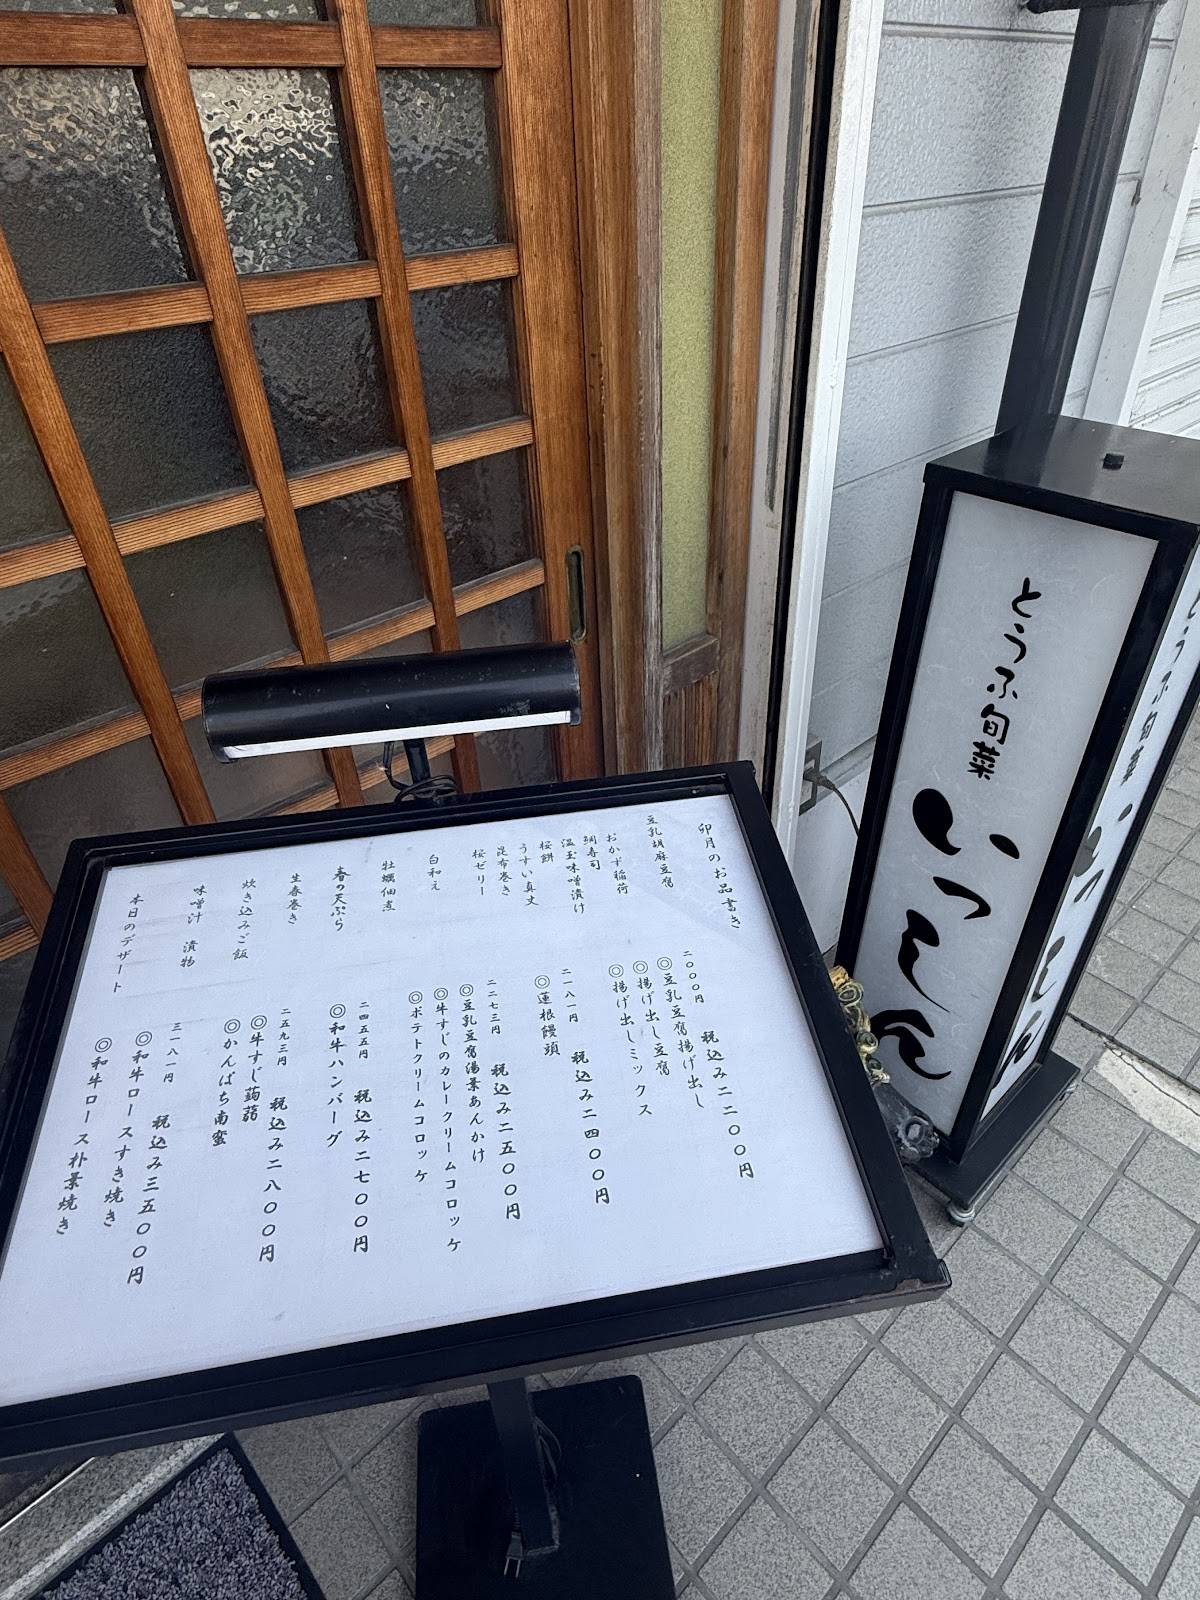 卯月のお品書き
豆乳胡麻豆腐
おかず稲荷
鯛寿司
温玉味噌漬け
桜餅
うすい真丈
昆布巻き
桜ゼリー
白和え
牡蠣佃煮
春の天ぷら
生春巻き
炊き込みご飯
味噌汁 漬物
本日のデザート
二〇〇〇円 税込み二二〇〇円
◎豆乳豆腐揚げ出し
◎揚げ出し豆腐
◎揚げ出しミックス
二一八一円 税込み二四〇〇円
◎蓮根饅頭
二二七三円 税込み二五〇〇円
◎豆乳豆腐湯葉あんかけ
◎牛すじのカレークリームコロッケ
◎ポテトクリームコロッケ
二四五五円 税込み二七〇〇円
◎和牛ハンバーグ
二五九三円 税込み二八〇〇円
◎牛すじ蒟蒻
◎かんぱち南蛮
三一八一円 税込み三五〇〇円
◎和牛ロースすき焼き
◎和牛ロース朴葉焼き
とうふ旬菜
いっしん
とうふ旬菜
いっしん